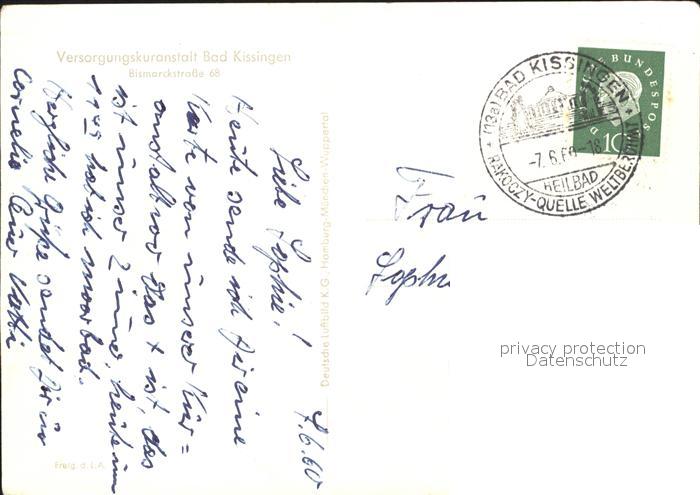 Versorgungskuranstalt Bad Kissingen
Bismarckstraße 68
7.6.60
Liebe Sophie!
Heute sende ich Dir eine
Karte von unserer Kur=
anstalt wo das x ist, das
ist unser Zimmer, heute um
11 45 hat ich Moorbad.
Herzliche Grüße sendet Dir u
Cornelia Euer Vatti
Freig. d. L.A.
Deutsche Luftbild K.G., Hamburg-München-Wuppertal
(13a) BAD KISSINGEN
-7.6.60-18
HEILBAD
RAKOCZY-QUELLE WELTBERÜHMT
BUNDESPOS
10
Frau
Sophi
privacy protection
Datenschutz